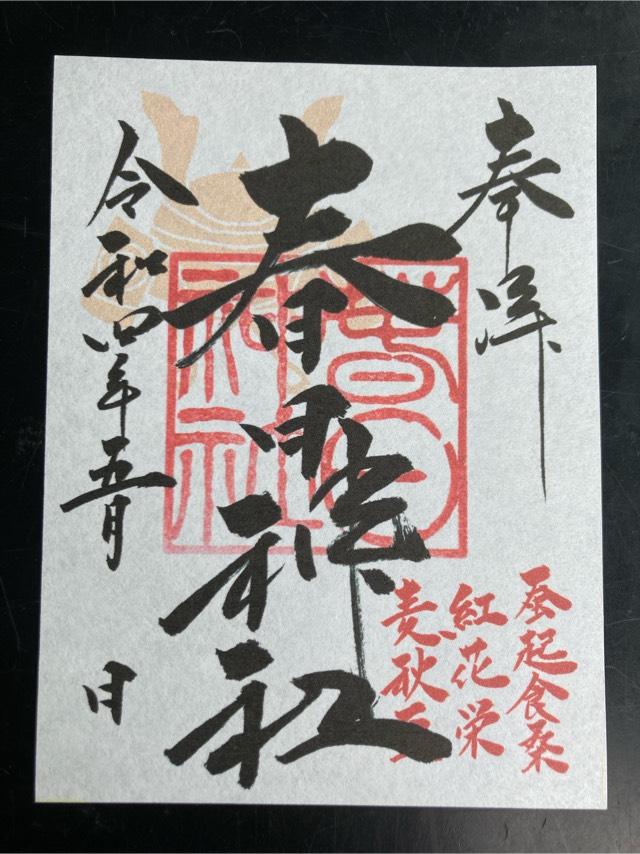 奉拝
春日神社
春日
神社
蚕起食桑
紅花栄
麦秋至
令和四年五月 日